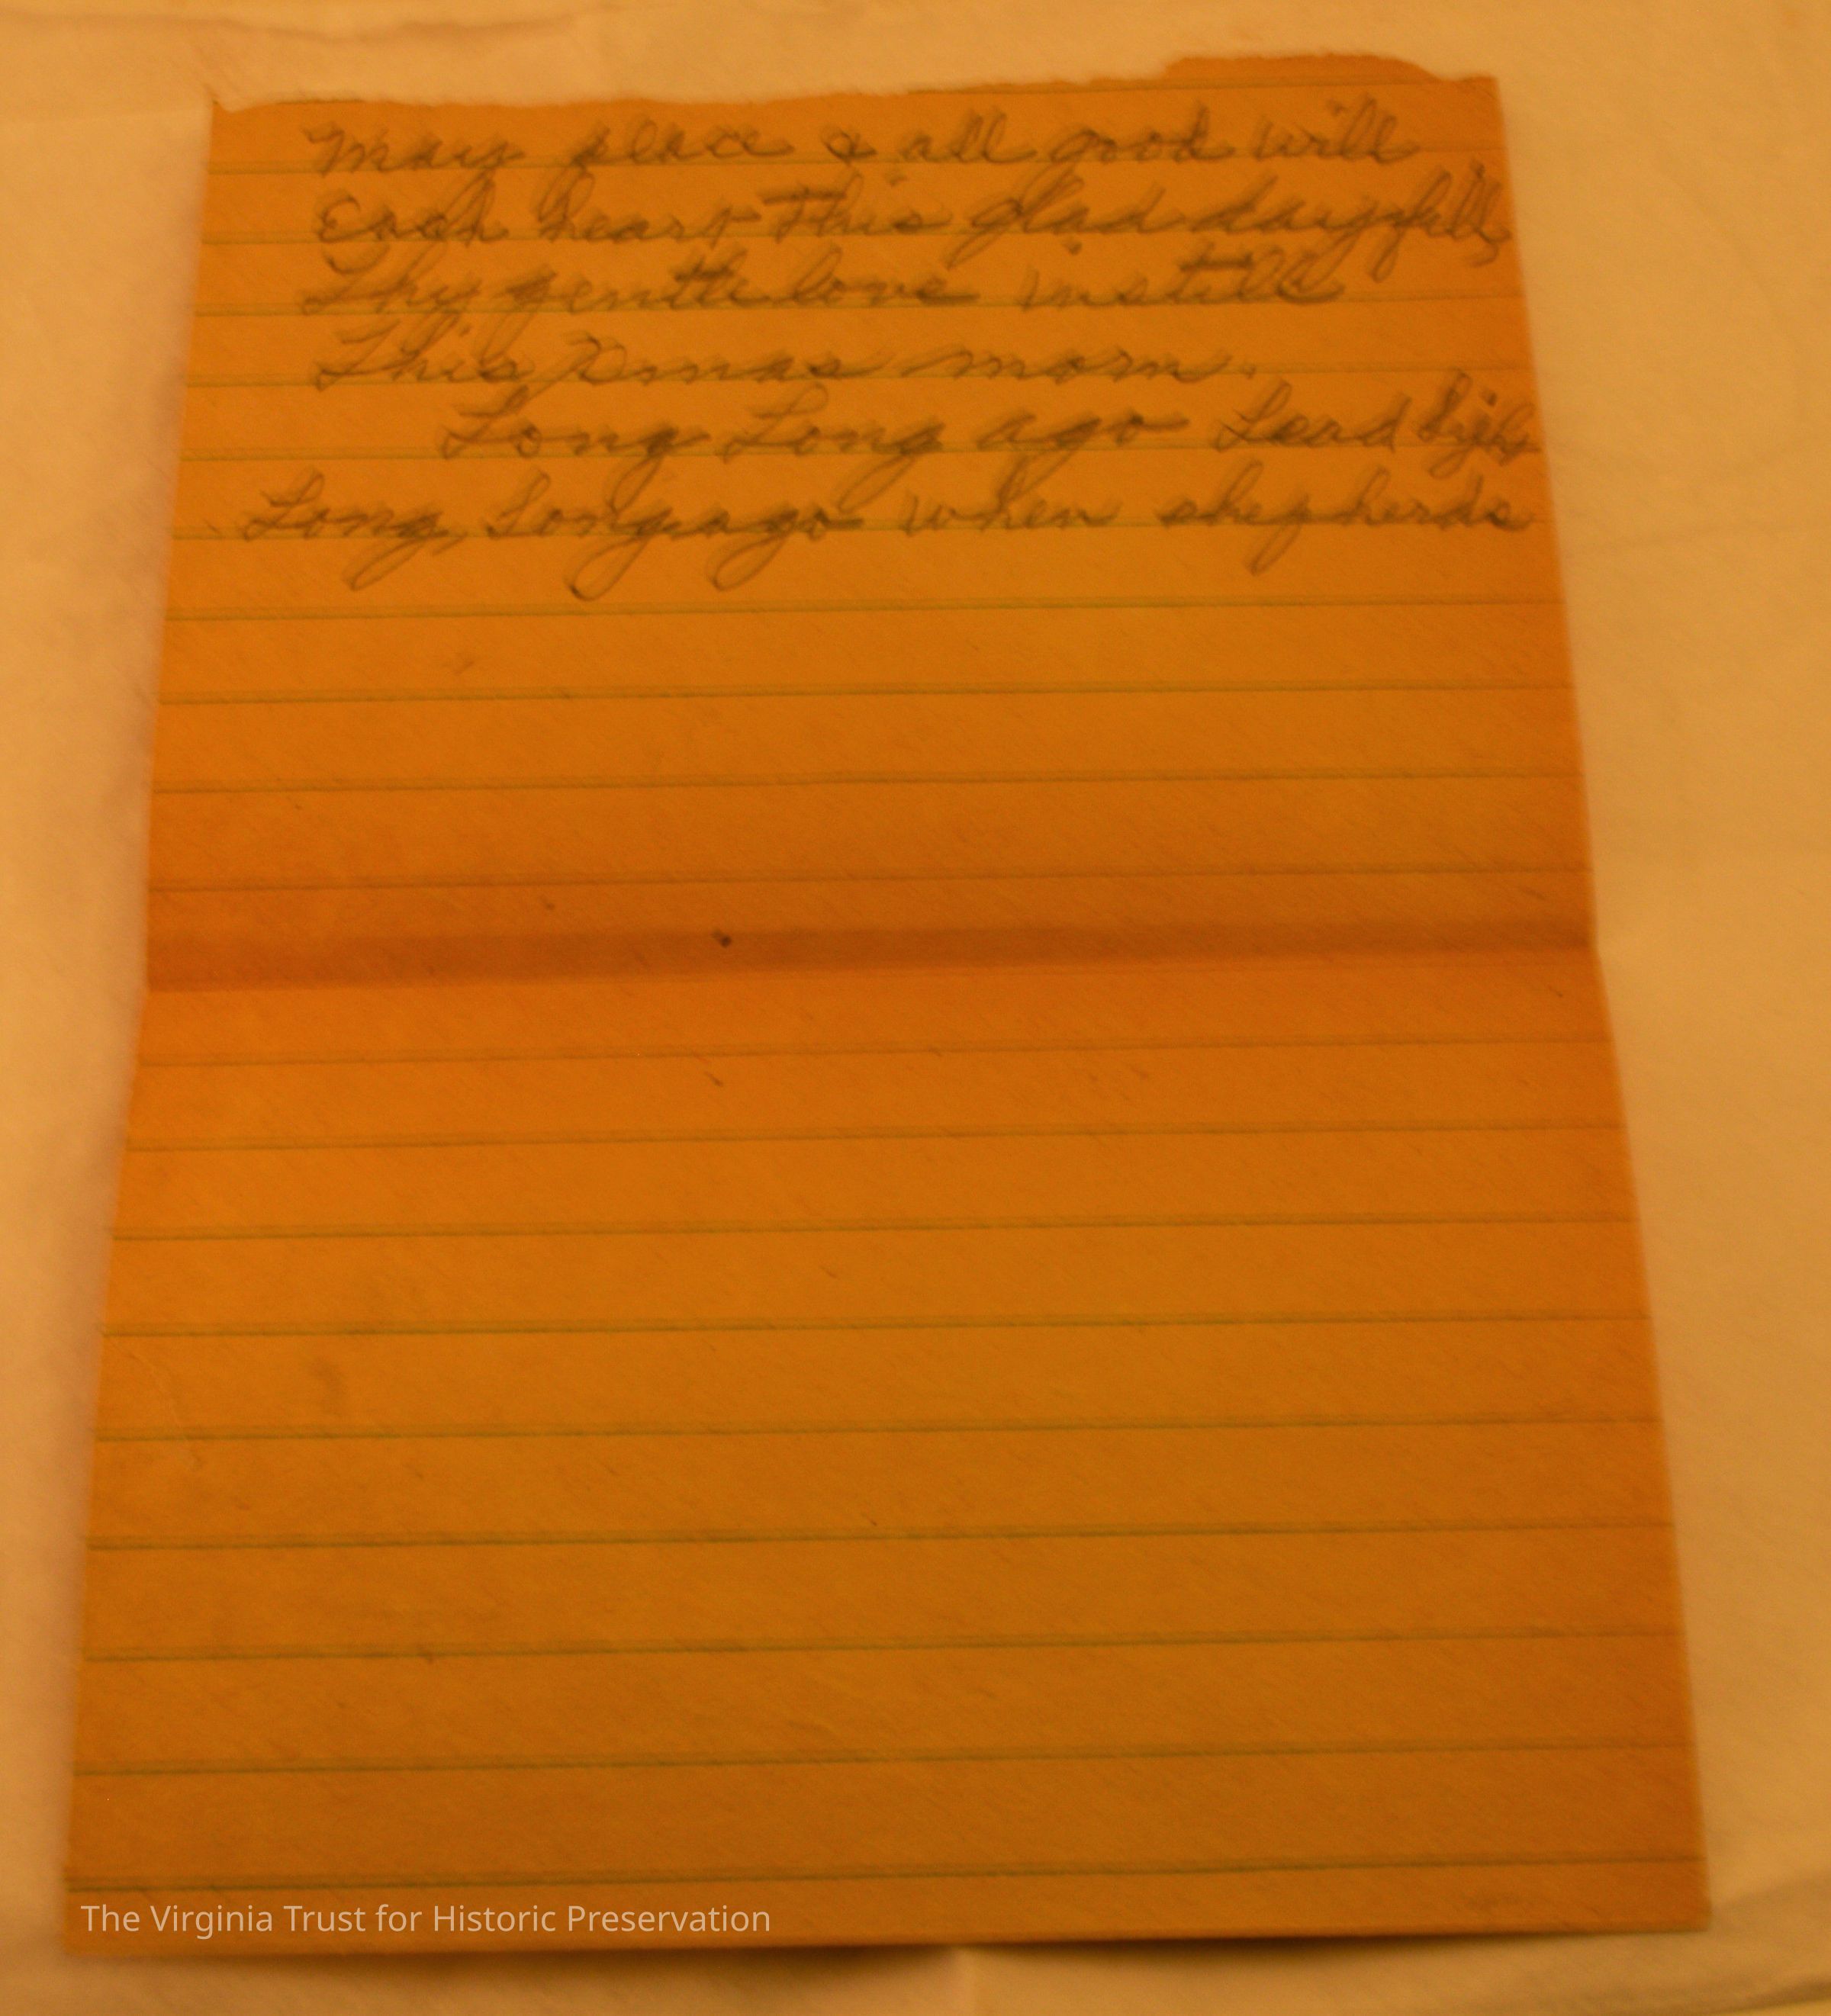 May peace & all good will
Each heart this glad day fill,
Thy gentle love instill
This Xmas morn.
Long Long ago Lead
Long, Long ago when shepherds
The Virginia Trust for Historic Preservation